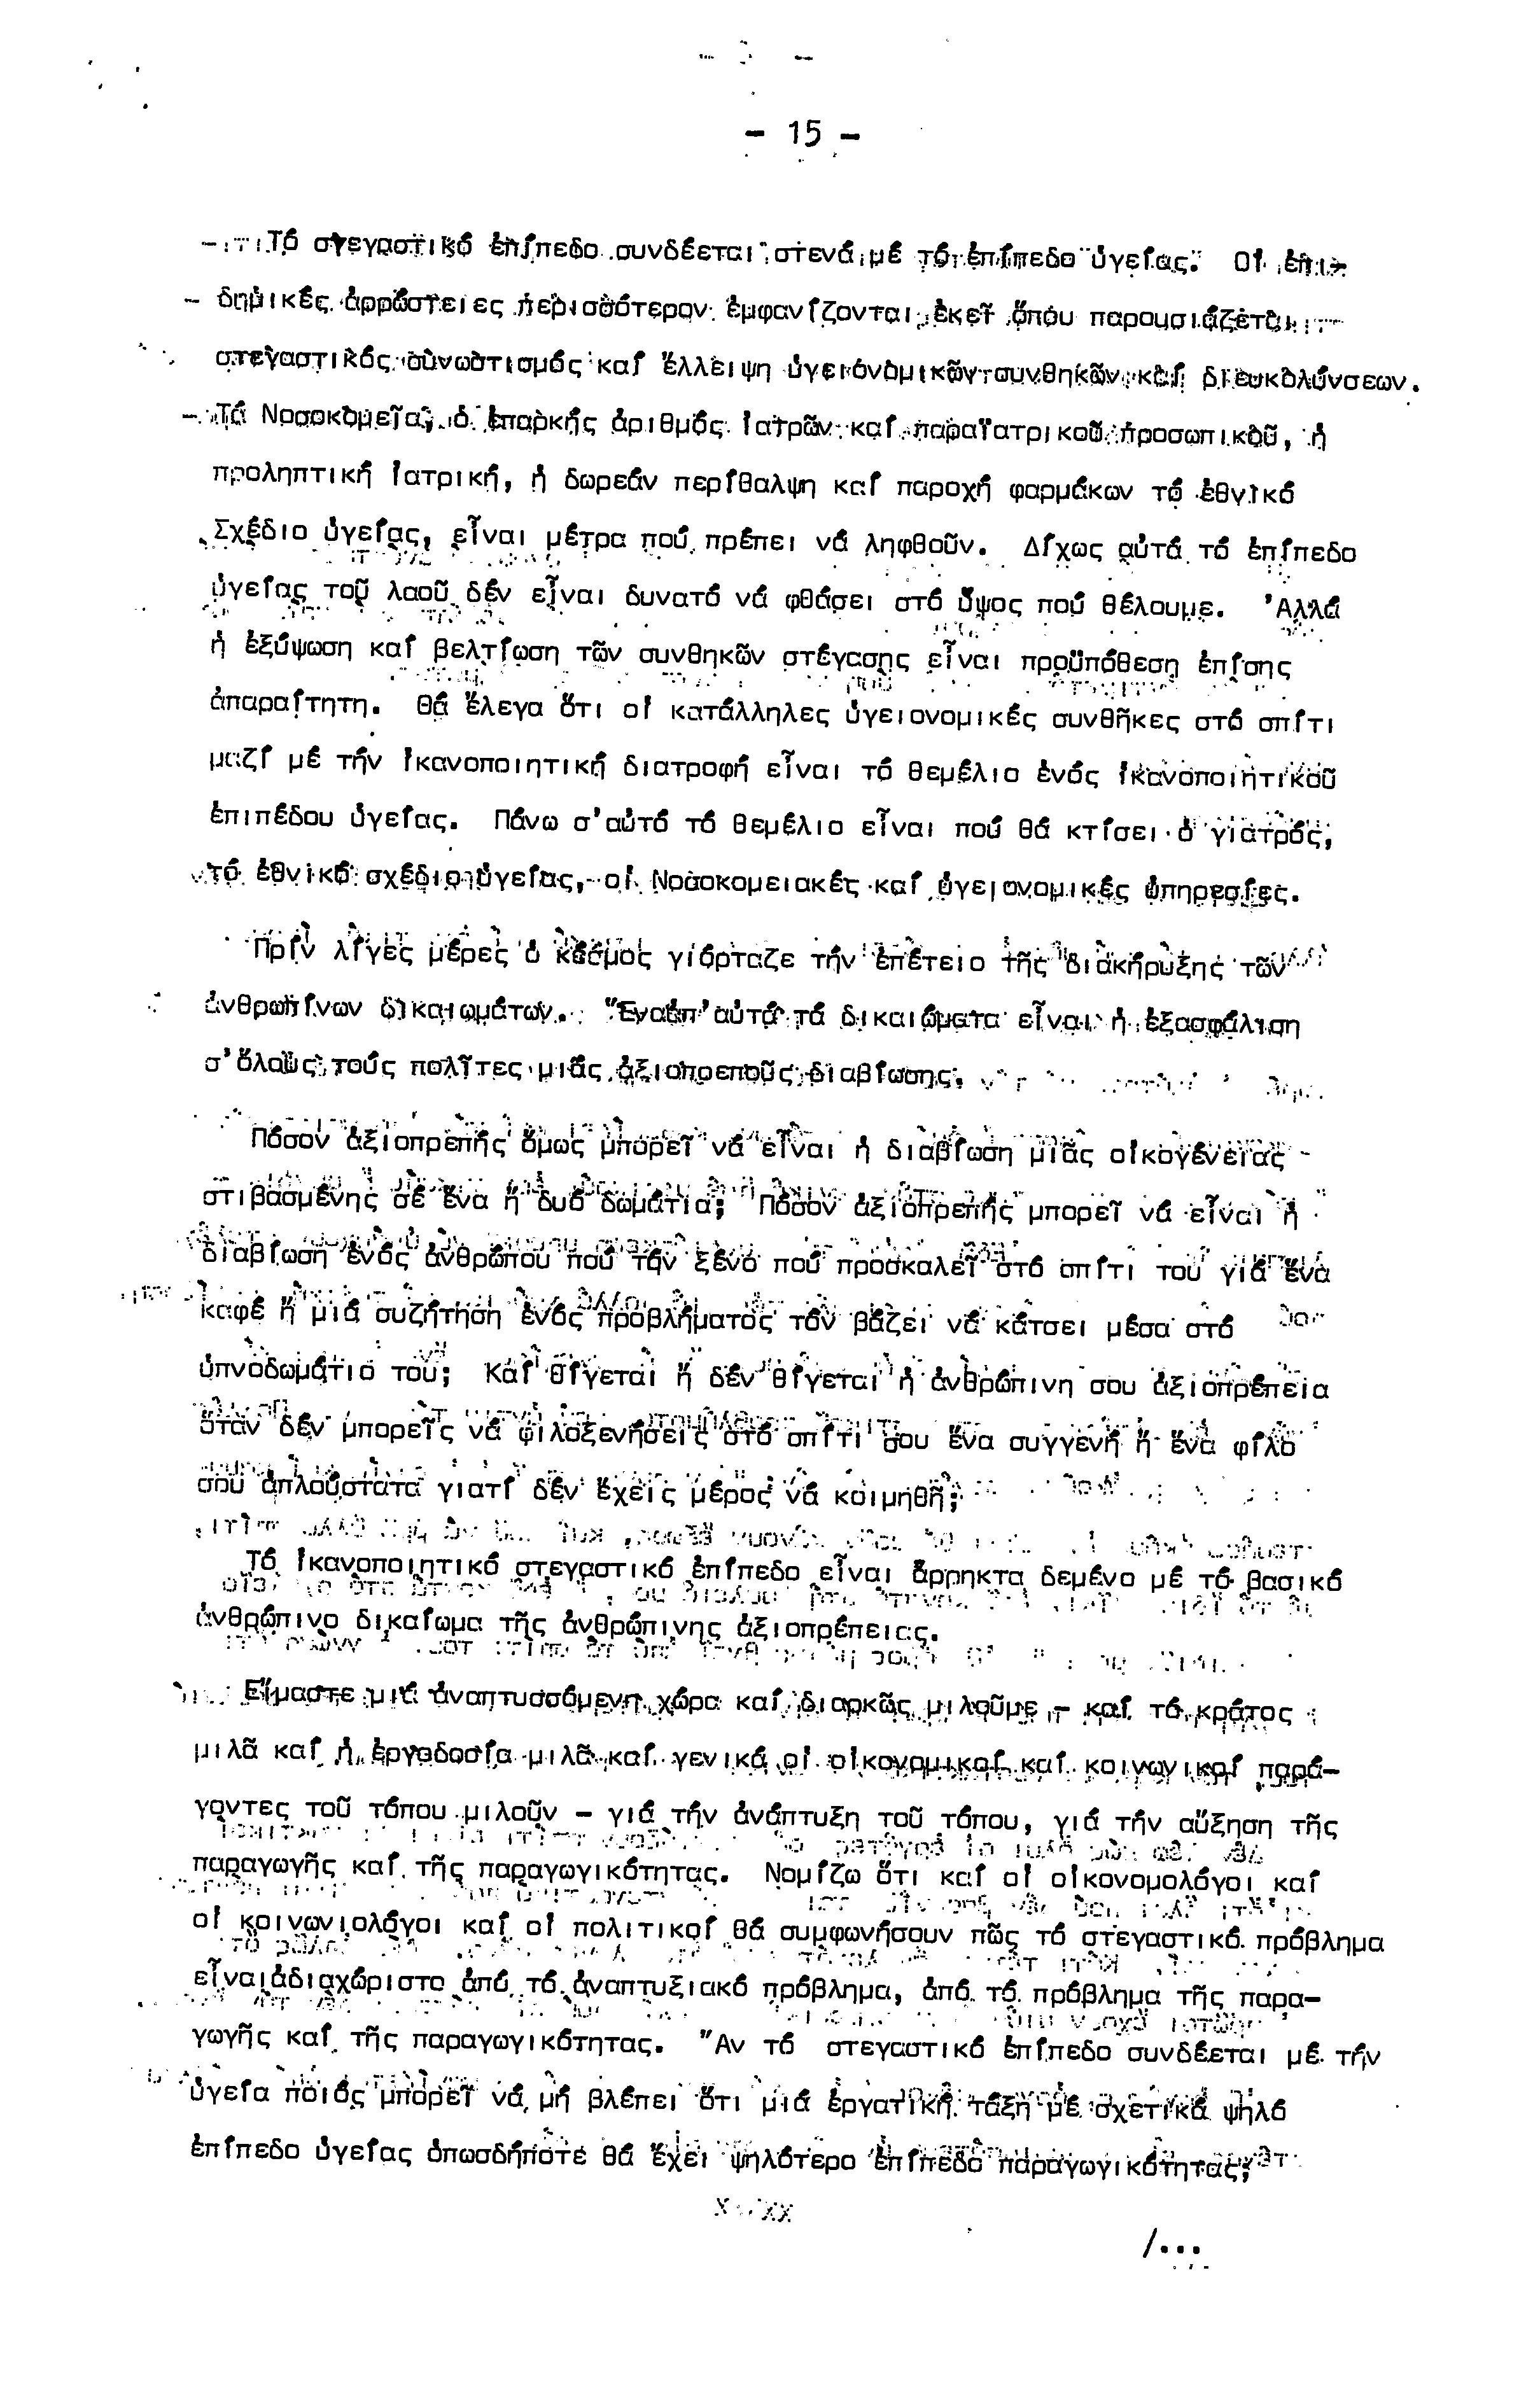 - 15 -
Τό στεγαστικό ἐπίπεδο συνδέεται στενά μέ τό ἐπίπεδο ὑγείας. Οἱ ἐπι-
δημικές ἀρρώστειες περισσότερον ἐμφανίζονται ἐκεῖ ὅπου παρουσιάζεται
στεγαστικός συνωστισμός καί ἔλλειψη ὑγειονομικῶν συνθηκῶν καί διευκολύνσεων.
Τά Νοσοκομεῖα, ὁ ἐπαρκής ἀριθμός ἰατρῶν καί παραϊατρικοῦ προσωπικοῦ, ἡ
προληπτική ἰατρική, ἡ δωρεάν περίθαλψη καί παροχή φαρμάκων τό ἐθνικό
Σχέδιο ὑγείας, εἶναι μέτρα πού πρέπει νά ληφθοῦν. Δίχως αὐτά τό ἐπίπεδο
ὑγείας τοῦ λαοῦ δέν εἶναι δυνατό νά φθάσει στό ὕψος πού θέλουμε. Ἀλλά
ἡ ἐξύψωση καί βελτίωση τῶν συνθηκῶν στέγασης εἶναι προϋπόθεση ἐπίσης
ἀπαραίτητη. Θά ἔλεγα ὅτι οἱ κατάλληλες ὑγειονομικές συνθῆκες στό σπίτι
μαζί μέ τήν ἱκανοποιητική διατροφή εἶναι τό θεμέλιο ἑνός ἱκανοποιητικοῦ
ἐπιπέδου ὑγείας. Πάνω σ'αὐτό τό θεμέλιο εἶναι πού θά κτίσει ὁ γιατρός,
τό ἐθνικό σχέδιο ὑγείας, οἱ Νοσοκομειακές καί ὑγειονομικές ὑπηρεσίες.
Πρίν λίγες μέρες ὁ κόσμος γιόρταζε τήν ἐπέτειο τῆς διακήρυξης τῶν
ἀνθρωπίνων δικαιωμάτων. Ἕναἀπ'αὐτά τά δικαιώματα εἶναι ἡ ἐξασφάλιση
σ'ὅλους τούς πολῖτες μιᾶς ἀξιοπρεποῦς διαβίωσης.
Πόσον ἀξιοπρεπής ὅμως μπορεῖ νά εἶναι ἡ διαβίωση μιᾶς οἰκογένειας
στιβασμένης σέ ἕνα ἤ δυό δωμάτια; Πόσον ἀξιοπρεπής μπορεῖ νά εἶναι ἡ
διαβίωση ἑνός ἀνθρώπου πού τόν ξένο πού προσκαλεῖ στό σπίτι του γιά ἕνα
καφέ ἤ μιά συζήτηση ἑνός προβλήματος τόν βάζει νά κάτσει μέσα στό
ὑπνοδωμάτιό του; Καί θίγεται ἤ δέν θίγεται ἡ ἀνθρώπινη σου ἀξιοπρέπεια
ὅταν δέν μπορεῖς νά φιλοξενήσεις στό σπίτι σου ἕνα συγγενή ἤ ἕνα φίλο
σου ἁπλούστατα γιατί δέν ἔχεις μέρος νά κοιμηθῆ;
Τό ἱκανοποιητικό στεγαστικό ἐπίπεδο εἶναι ἄρρηκτα δεμένο μέ τό βασικό
ἀνθρώπινο δικαίωμα τῆς ἀνθρώπινης ἀξιοπρέπειας.
Εἴμαστε μιά ἀναπτυσσόμενη χώρα καί διαρκῶς μιλοῦμε - καί τό κράτος
μιλᾶ καί ἡ ἐργοδοσία μιλᾶ καί γενικά οἱ οἰκονομικοί καί κοινωνικοί παρά-
γοντες τοῦ τόπου μιλοῦν - γιά τήν ἀνάπτυξη τοῦ τόπου, γιά τήν αὔξηση τῆς
παραγωγῆς καί τῆς παραγωγικότητας. Νομίζω ὅτι καί οἱ οἰκονομολόγοι καί
οἱ κοινωνιολόγοι καί οἱ πολιτικοί θά συμφωνήσουν πῶς τό στεγαστικό πρόβλημα
εἶναιἀδιαχώριστο ἀπό τό ἀναπτυξιακό πρόβλημα, ἀπό τό πρόβλημα τῆς παρα-
γωγῆς καί τῆς παραγωγικότητας. Ἄν τό στεγαστικό ἐπίπεδο συνδέεται μέ τήν
ὑγεία ποιός μπορεῖ νά μή βλέπει ὅτι μιά ἐργατική τάξη μέ σχετικά ψηλό
ἐπίπεδο ὑγείας ὁπωσδήποτε θά ἔχει ψηλότερο ἐπίπεδο παραγωγικότητας;
/...